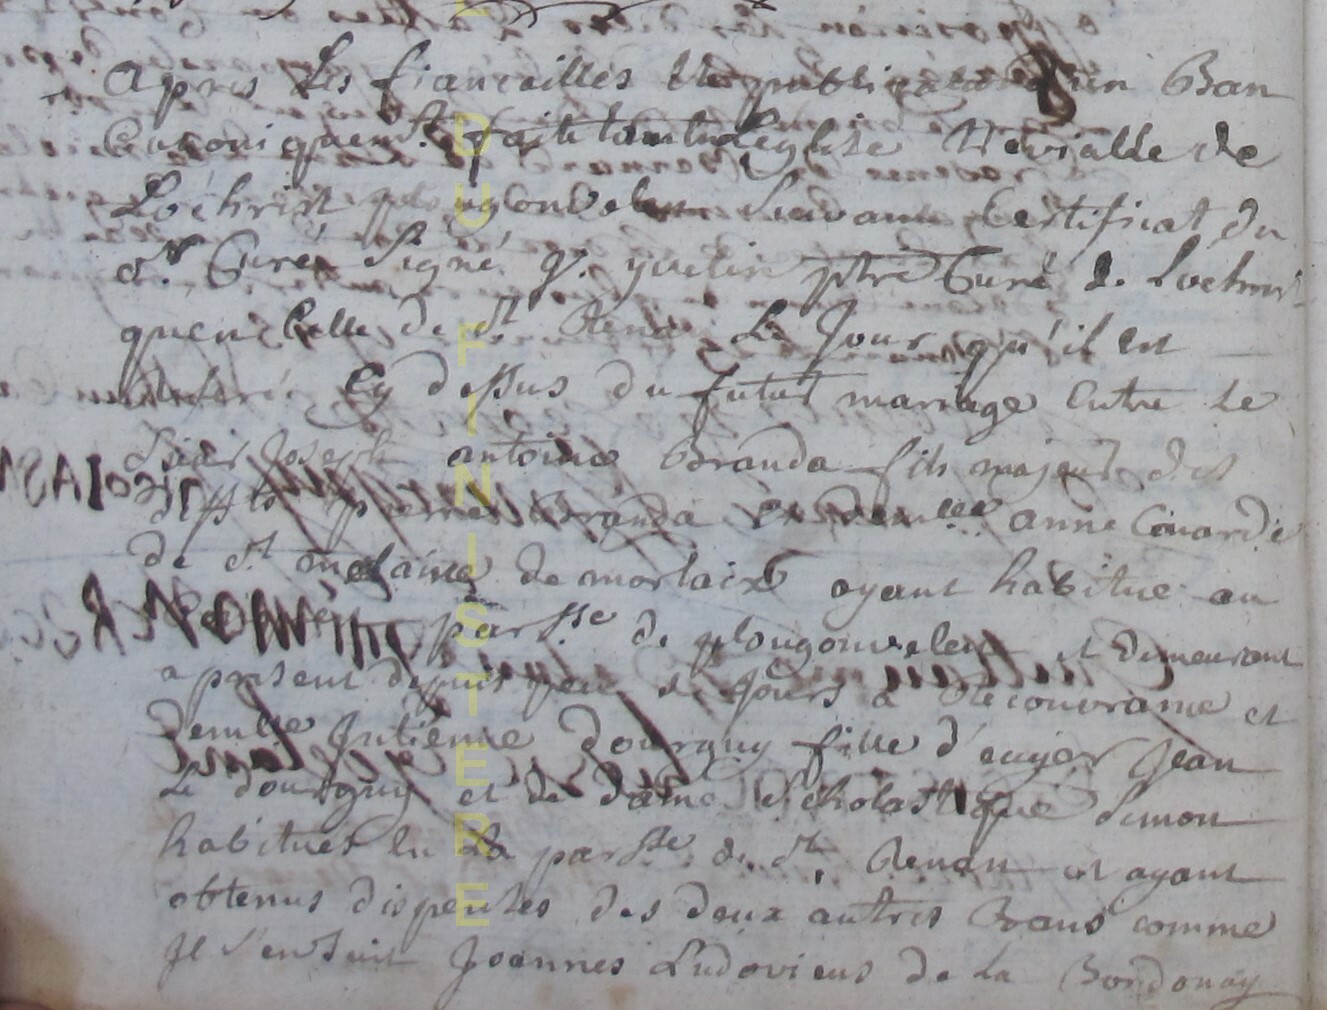 apres les fiancailles & la publication d'un Ban
Canoniquem.t faite tant en l'eglise trevialle de
Lochrist plougonvelen suivant Certificat du
S.r Curé signé g. yvelin ptre Curé de Lochrist
qu'en Celle de S.t Renan Le Jour qu'il est
inseré Cy dessus du futur mariage Entre Le
Sieur Joseph antoine Branda fils majeur des
deffts pierre Branda et demlle anne
de S.t melaine de morlaix ayant habitué au
parsse de plougonvelen et demeurant
a present depuis peu de Jours à Recouvrance et
demlle Julienne dourguy fille d'ecuyer Jean
Le dourguy et de dame Scholastique Simon
habitues en La parsse de St Renan et ayant
obtenus dispenses des deux autres Bans comme
Jl s'ensuit Joannes Ludovicus de La Bordonay
DU FINISTERE